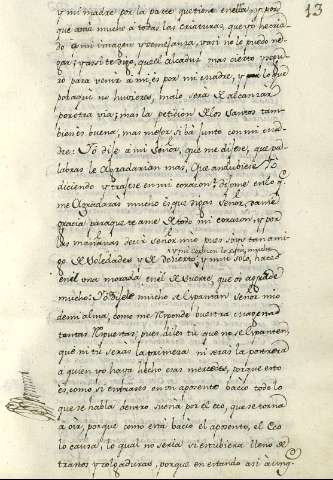 13
y mi madre por la parte que tiene en ella, y por
que amo mucho a todas las criaturas, que yo he criado
a mi imagen y semejanza, y asi no le puedo ne
gar; y assi te digo, que el alcaduz mas cierto y segu
ro para venir a mi, es por mi madre, y lo que
por aqui no huvieres, malo sera de alcanzar
por otra via; mas la peticion de los santos tam
bien es buena, mas mejor si ba junto con mi ma
dre: Yo dije a mi Señor, que me dijese, que pa
labras le agradarian mas, que andubiese Yo
diciendo y trajese en mi corazon? dijome en lo q.
me agradaras mucho es que digas Señor, dame
gracia para que te ame de todo mi corazon, y por
las mañanas Señor mio pues sois tan ami
go de soledades y de desierto, y mui solo, haced
en el una morada en el de suerte, que os agrade
mucho: Yo dijele mucho se espantan Señor mio
demi alma, como me responde vuestra magestad
tantas respuestas; pues diles tu que no se espanten,
que ni tu seras la primera ni seras la postrera
a quien yo haya hecho esas mercedes, porque esto
es como si entrases en un aposento bacio todo lo
que se habla dentro suena por el eco, que se torna
a oir, porque como esta bacio el aposento, el Eco
lo causa, lo qual no seria si estubiera lleno de
trastos y colgaduras, porque en estando asi aunq.